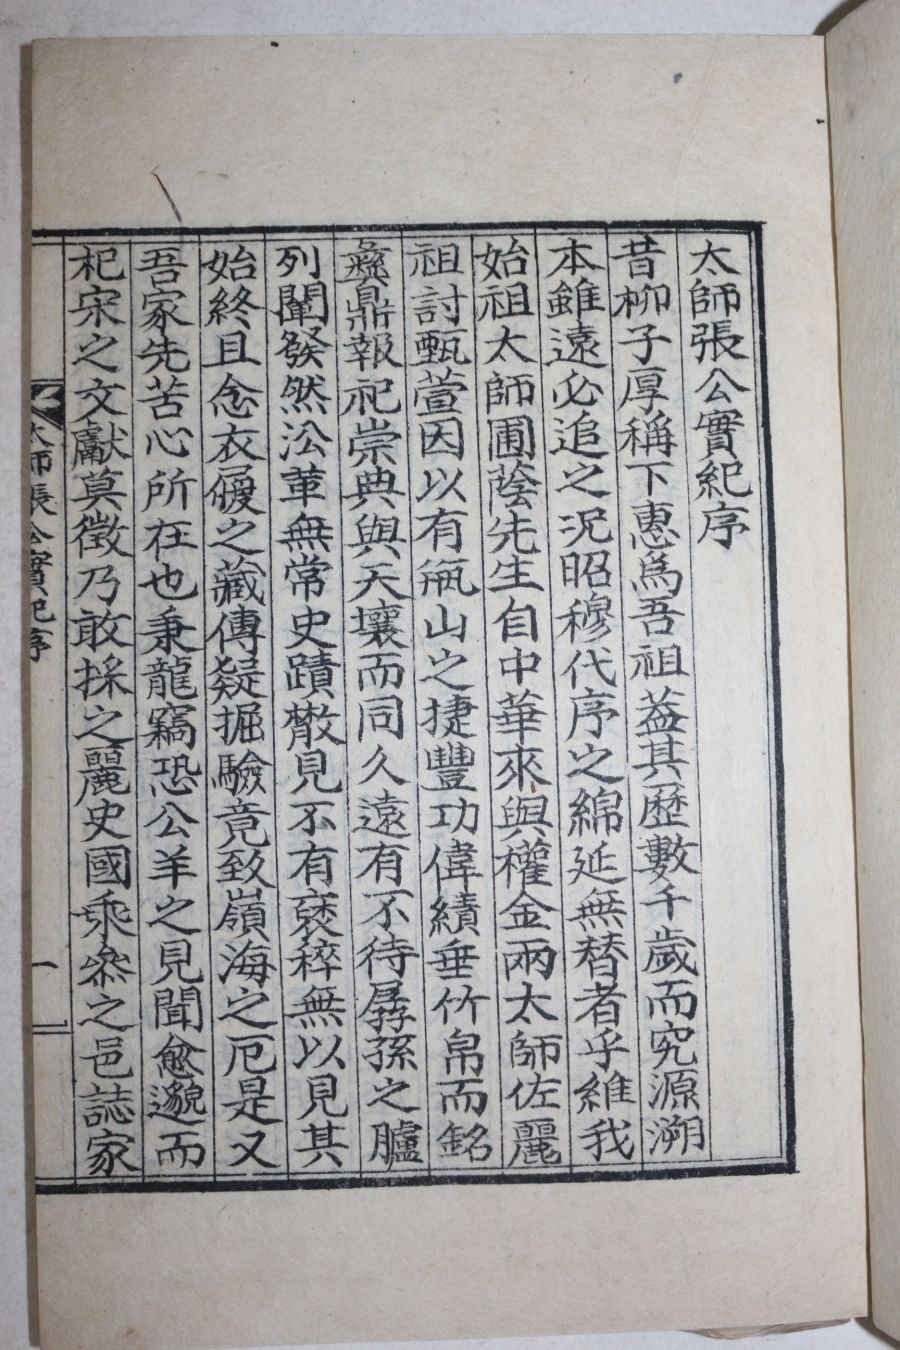 太師張公實紀序
昔柳子厚稱下惠爲吾祖葢其歷數千歲而究源溯
本雖遠必追之况昭穆代序之綿延無替者乎維我
始祖太師圃蔭先生自中華來與權金兩太師佐麗
祖討甄萱因以有甁山之捷豐功偉績垂竹帛而銘
彝鼎報祀崇典與天壤而同久遠有不待孱孫之臚
列闡發然沿革無常史蹟散見不有裒稡無以見其
始終且念衣履之藏傳疑掘驗竟致嶺海之厄是又
吾家先苦心所在也秉龍竊恐公羊之見聞愈邈而
杞宋之文獻莫徵乃敢採之麗史國乘叅之邑誌家
太師張公實紀序 一